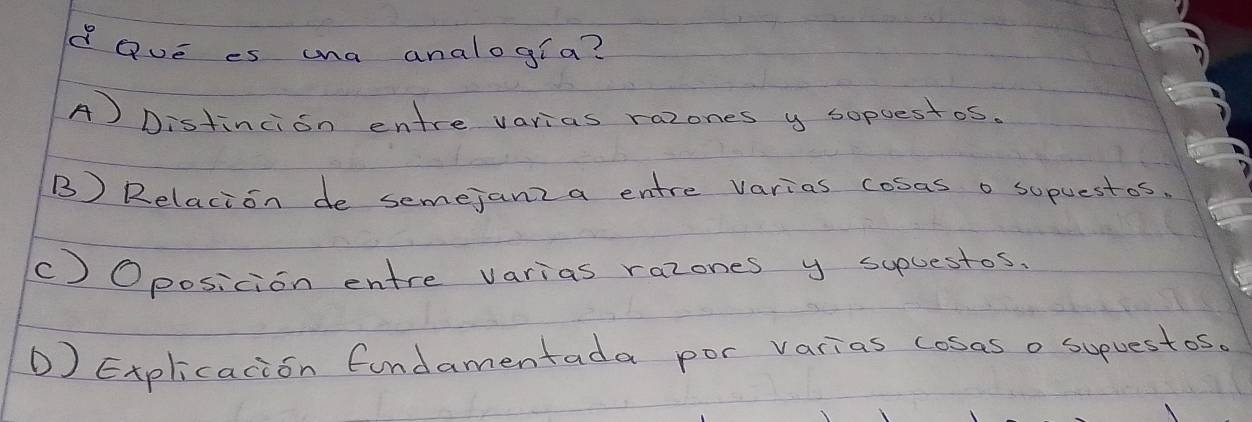 ¿Qué es una analogía?
A) Distinción entre varias razones y sopuestos.
B) Relación de semejanza entre varias cosas o supuestos.
C) Oposición entre varias razones y supuestos.
D) Explicación fundamentada por varias cosas o supuestos.